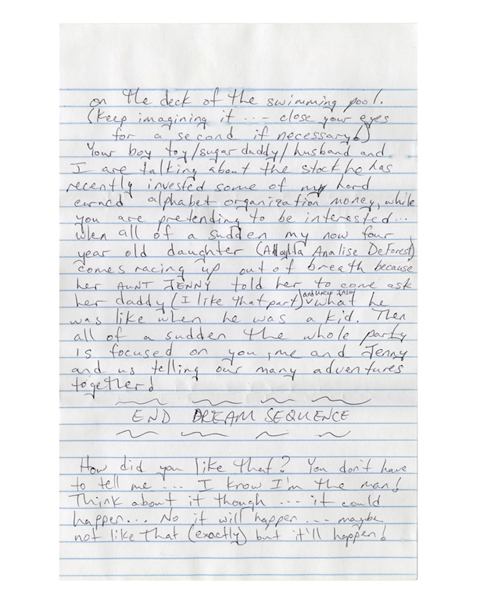 on the deck of the swimming pool.
(Keep imagining it --- close your eyes
for a second if necessary!)
Your boy toy/sugar daddy/husband and
I are talking about the stock he has
recently invested some of my hard
earned alphabet organization money, while
you are pretending to be interested...
when all of a sudden my now four
year old daughter (Analise DeForest)
comes racing up out of breath because
her AUNT JENNY told her to come ask
her daddy (I like that part) what he
was like when he was a kid. Then
all of a sudden the whole party
is focused on you, me and Jenny
and us telling our many adventures
together!
END DREAM SEQUENCE
How did you like that? You don't have
to tell me --- I know I'm the man!
Think about it though --- it could
happen... No it will happen --- maybe
not like that (exactly) but it'll happen!